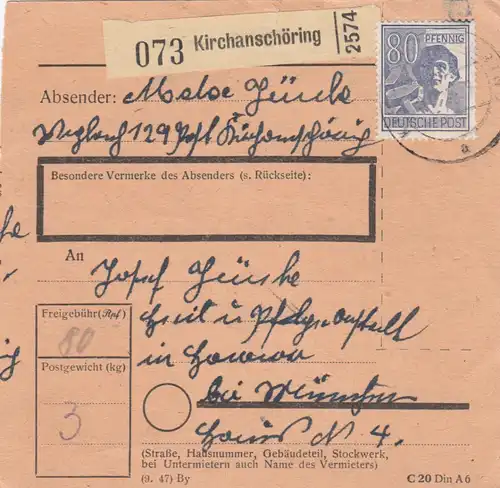 073 Kirchanschöring 2574
80 PFENNIG
DEUTSCHE POST
a
Absender:
129 Post Kirchanschöring
Besondere Vermerke des Absenders (s. Rückseite):
An Josef
Freigebühr (Rpf)
80
Heil u Pflege-anstalt
in
Postgewicht (kg)
3
bei München
Haus N 4.
(Straße, Hausnummer, Gebäudeteil, Stockwerk,
bei Untermietern auch Name des Vermieters)
(9. 47) By
C 20 Din A 6